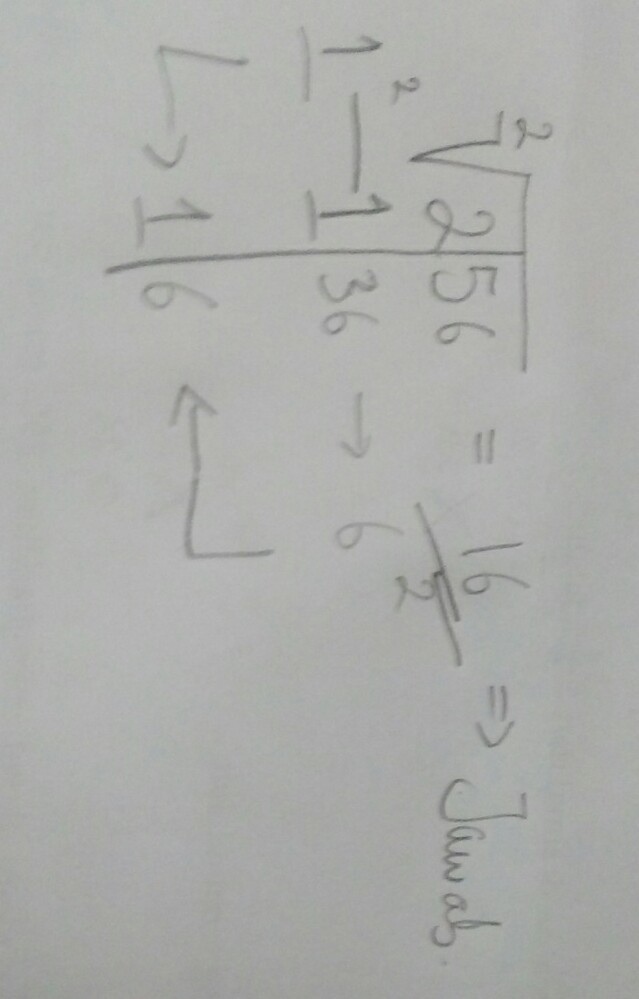 ²√256 = 16 => Jawab.
1² — 1 36 → 6
↳ 1 6